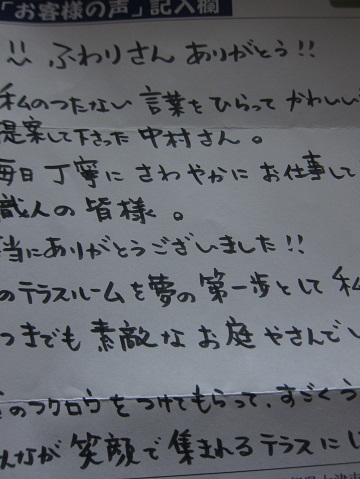 「お客様の声」記入欄
!! ふわりさん ありがとう!!
私のつたない 言葉をひらって かわいい
提案して下さった 中村さん。
毎日 丁寧に さわやかに お仕事して
職人の 皆様。
当にありがとうございました!!
のテラスルームを夢の 第一歩として 私
つまでも 素敵な お庭やさんでし
のフクロウをつけてもらって、すごくう
んなが 笑顔で 集まれるテラスにし